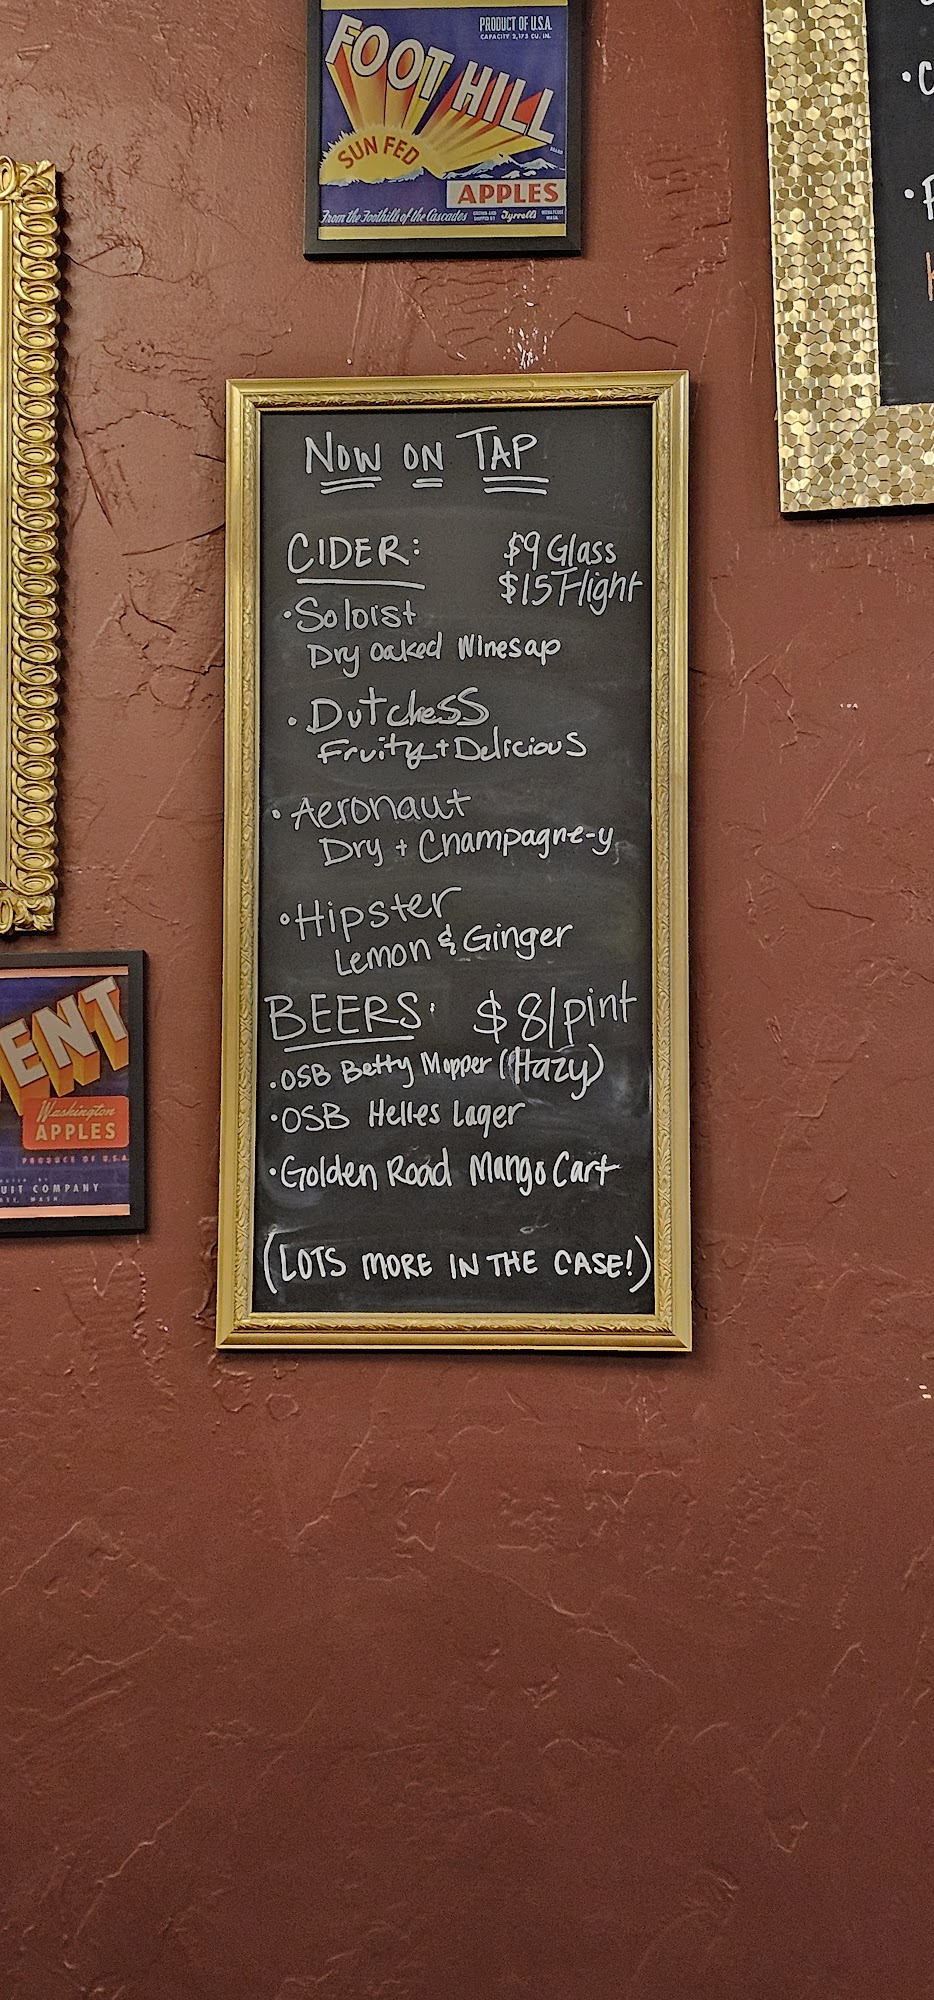 FOOT HILL
PRODUCT OF U.S.A.
CAPACITY 2,173 CU. IN.
SUN FED
APPLES
From the Foothills of the Cascades
Tyrrell's
NOW ON TAP
CIDER:
$9 Glass
$15 Flight
• Soloist
Dry Oaked Winesap
• Dutchess
Fruity + Delicious
• Aeronaut
Dry + Champagne-y
• Hipster
Lemon & Ginger
BEERS: $8/pint
• OSB Betty Mopper (Hazy)
• OSB Helles Lager
• Golden Road Mango Cart
(LOTS MORE IN THE CASE!)
ENT
Washington
APPLES
PRODUCE OF U.S.A.
UIT COMPANY